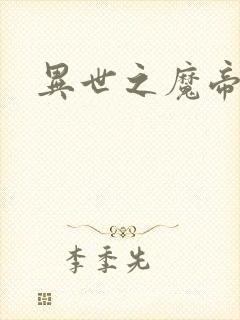 異世之魔帝
李季先